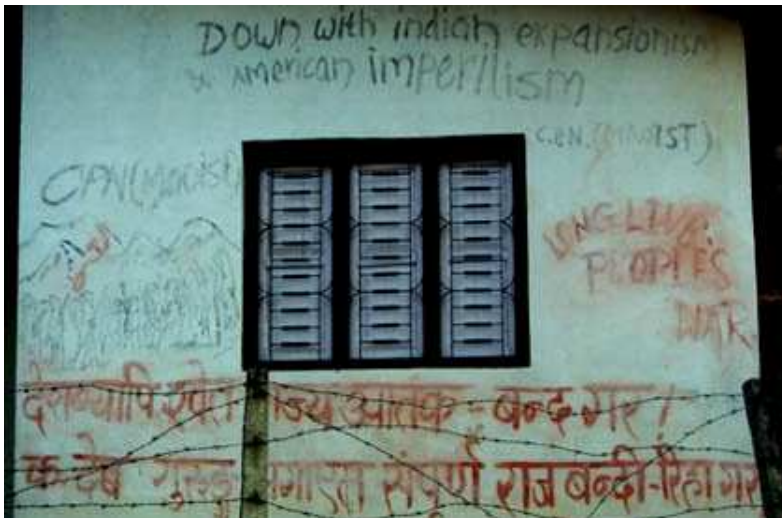 Down with indian expansionism
& American imperilism
C.P.N. (MAOIST)
CPN (MAOIST)
LONG LIVE
PEOPLE'S
WAR
देशब्यापि श्वेत राज्य आतंक - बन्द गर !
क. देब गुरुङ्ग लगाएत संपूर्ण राज बन्दी रिहा गर